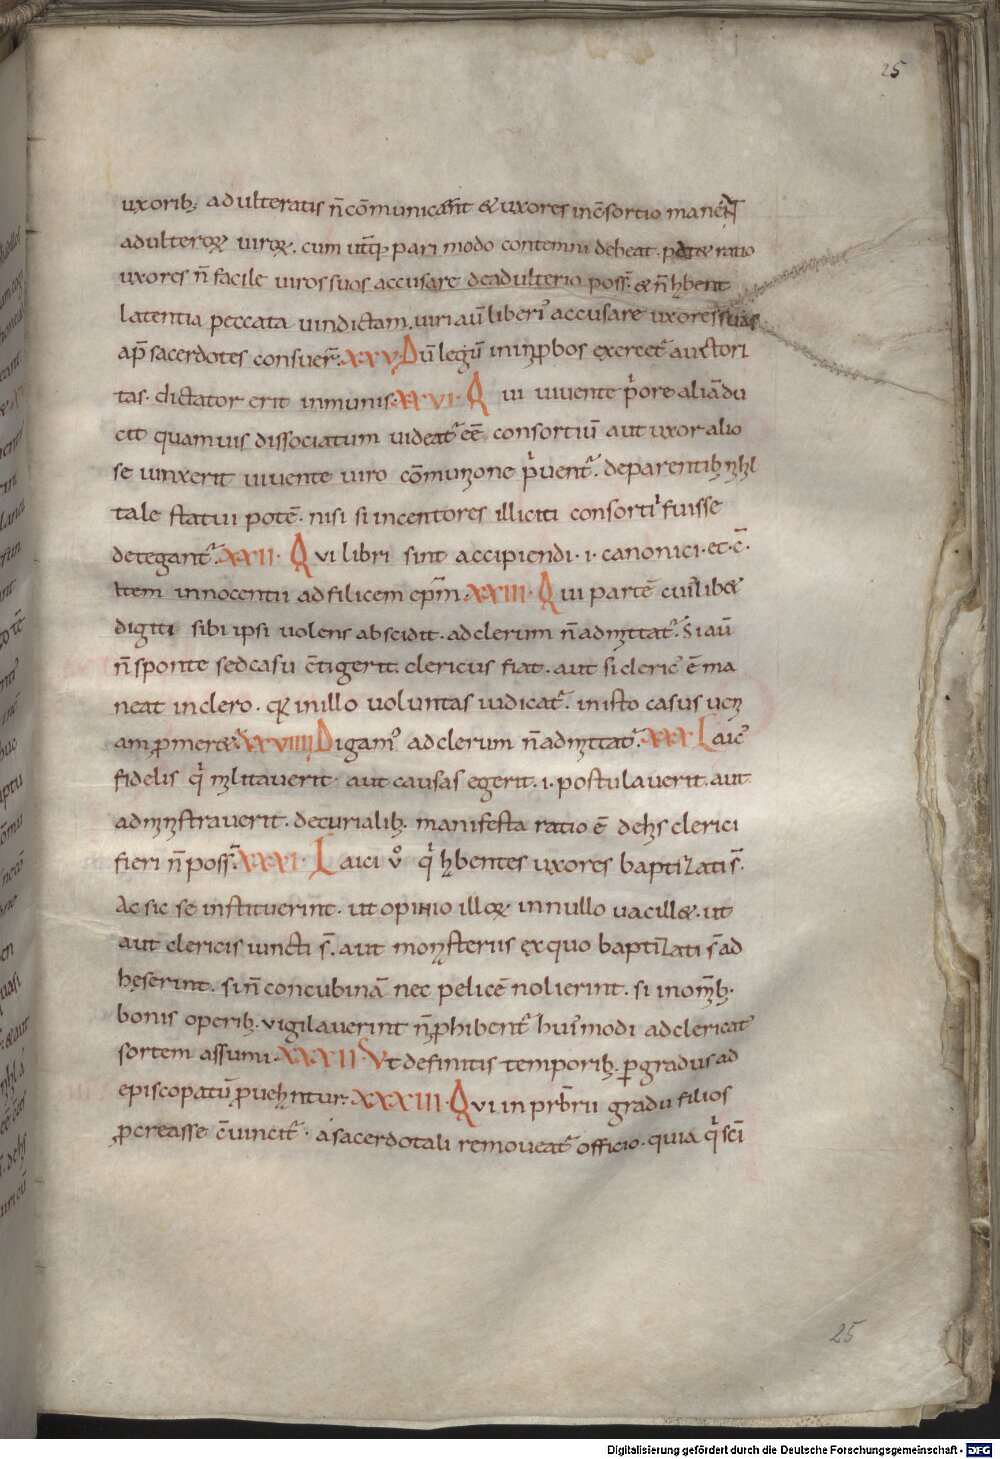 25
uxorib; adulteratis n̄ cōmunicarēt & uxores in c̄sortio manenꝉ
adulteroꝝ uiroꝝ. cum utūq; pari modo contemni debeat. pdet& ratio
uxores n̄ facile uiros suos accusare deadulterio poss̄. & n̄ hn̄bent
latentia peccata uindictam. uiri aū liberi᾽ accusare uxores suas
ap̄ sacerdotes consuer̄. XXV. Dū legū in inp̱bos exercet᾽ auctori
tas. dictator erit inmunis. XXVI. Qui uiuente p᾽ore aliā du
cit quamuis dissociatum uideat᾽ eē consortiū aut uxor alio
se iunxerit uiuente uiro cōmunione p᾽uent᾽. de parentib; nihil
tale statui potē. nisi si incentores illiciti consortii fuisse
detegant᾽. XXII. Qui libri sint accipiendi. i. canonici. et. c̄.
Item innocentii ad filicem ep̄m. XXIII. Qui partē cui᾽lib&
digiti sibi ipsi uolens abscidit. ad clerum n̄ admittat᾽. Si aū
n̄ sponte sed casu c̄tigerit. clericus fiat. aut si cleric᾽ ē ma
neat in clero. qr̄ in illo uoluntas iudicat᾽. in isto casus ueni
am p̱mer&. XXVIIII Digam᾽ ad clerum n̄ admittat᾽. XXX. Laic᾽
fidelis q᾽ militauerit. aut causas egerit. i. postulauerit. aut
administrauerit. decurialib;. manifesta ratio ē de his clerici
fieri n̄ poss̄. XXXI. Laici ṽ q᾽ hn̄bentes uxores baptizati s̄.
Ac sic se instituerint. ut opinio illoꝝ in nullo uacill&. ut
aut clericis iuncti s̄. aut monasteriis ex quo baptizati s̄ ad
hęserint. si n̄ concubinā nec pelicē nolierint. si in om̄ib;
bonis operib; uigilauerint n̄ p̱hibent᾽ hui᾽modi ad clericat᾽
sortem assumi. XXXII. Vt definitis temporib; p̱ gradus ad
episcopatū p̱uehantur. XXXIII. Qui in prb̄rii gradu filios
p̱creasse c̄uincit᾽. a sacerdotali remoueat᾽ officio. quia q᾽ sc̄i
25
Digitalisierung gefördert durch die Deutsche Forschungsgemeinschaft - DFG